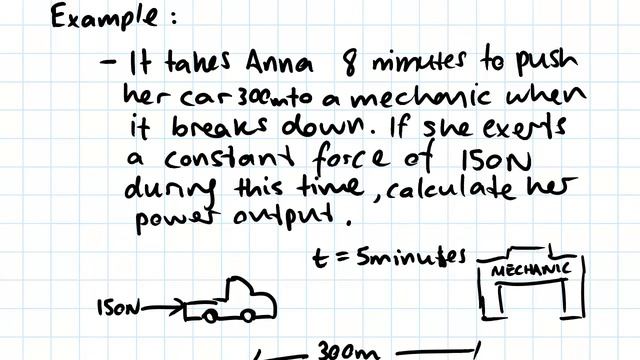 Example:
- It takes Anna 8 minutes to push
her car 300m to a mechanic when
it breaks down. If she exerts
a constant force of 150N
during this time, calculate her
power output.
t = 5minutes
MECHANIC
150N
300m